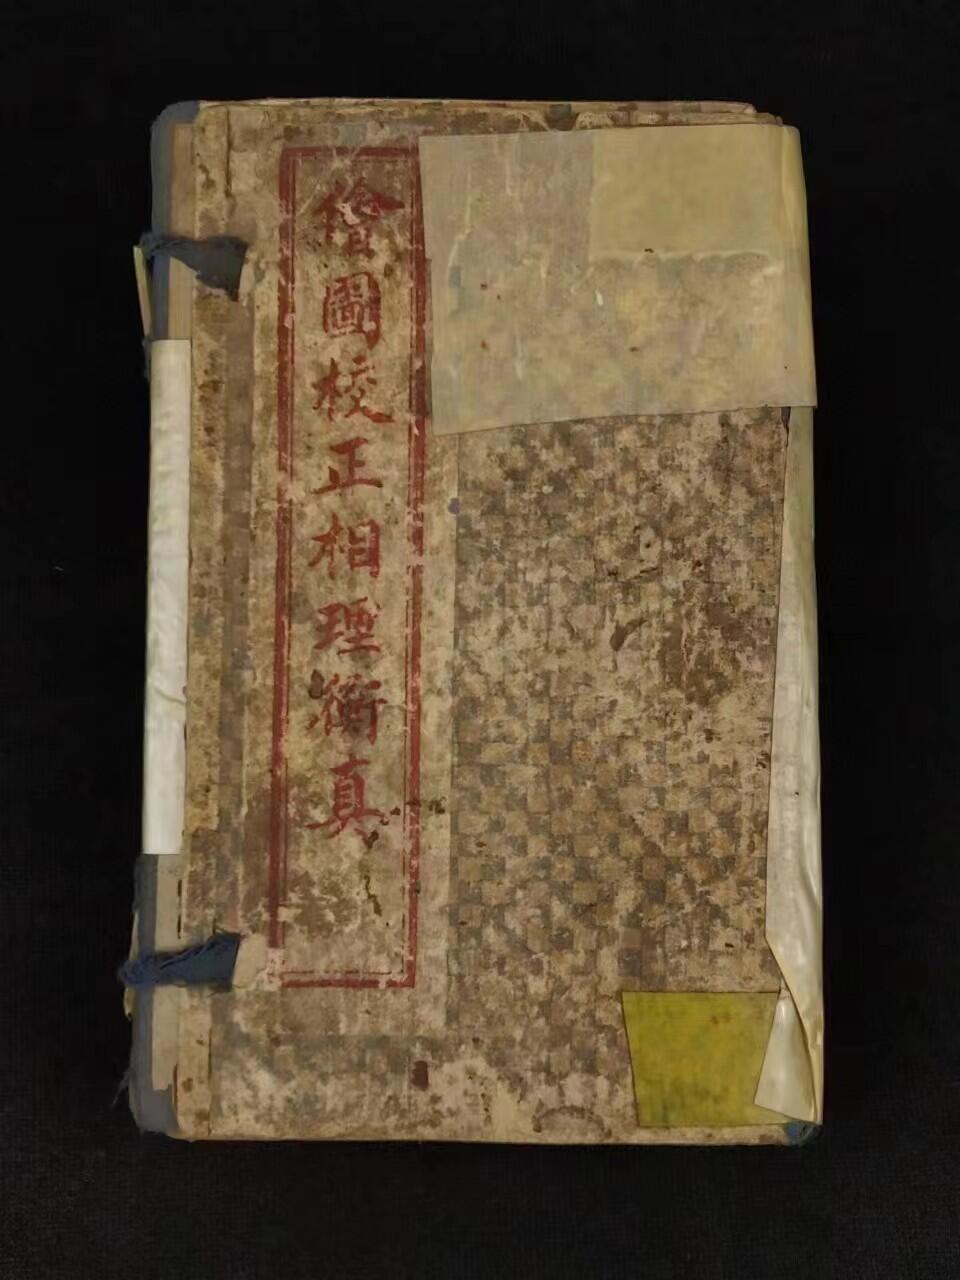 繪圖校正相理衡真